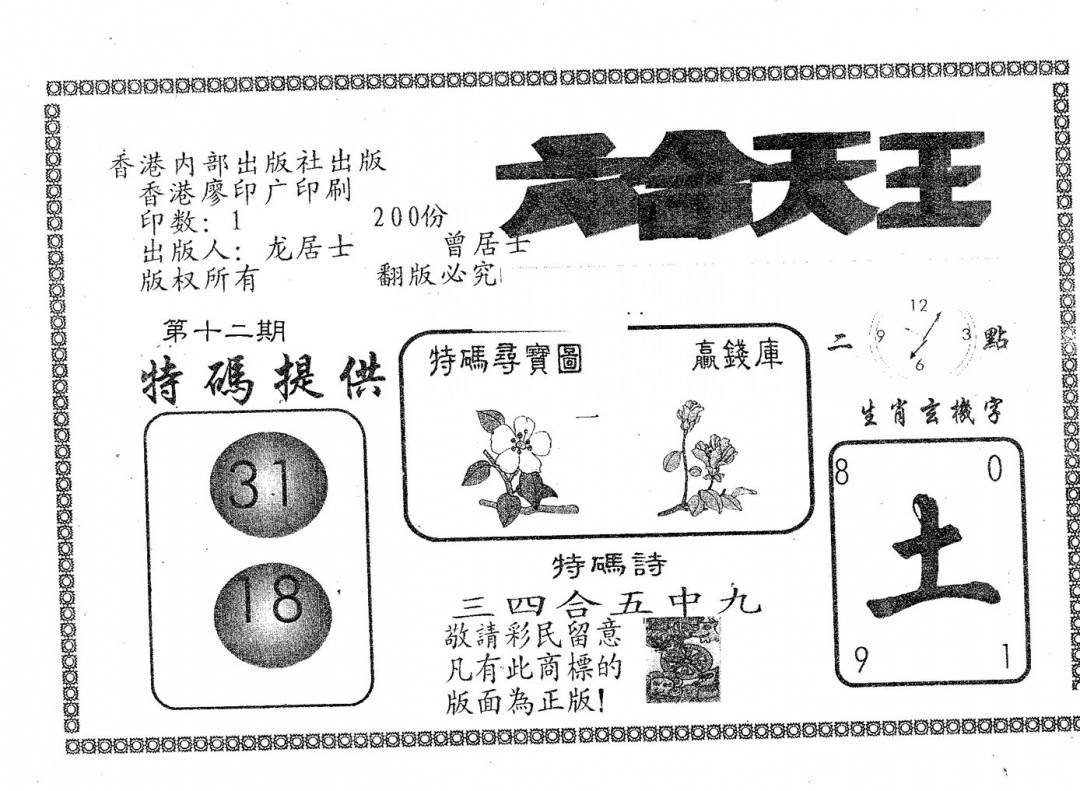 香港内部出版社出版
香港廖印广印刷
印数: 1 200份
出版人: 龙居士 曾居士
版权所有 翻版必究
六合天王
第十二期
特碼提供
31
18
特碼尋寶圖 贏錢庫
一
二 點
12
9 3
6
生肖玄機字
8 0
土
9 1
特碼詩
三四合五中九
敬請彩民留意
凡有此商標的
版面為正版!